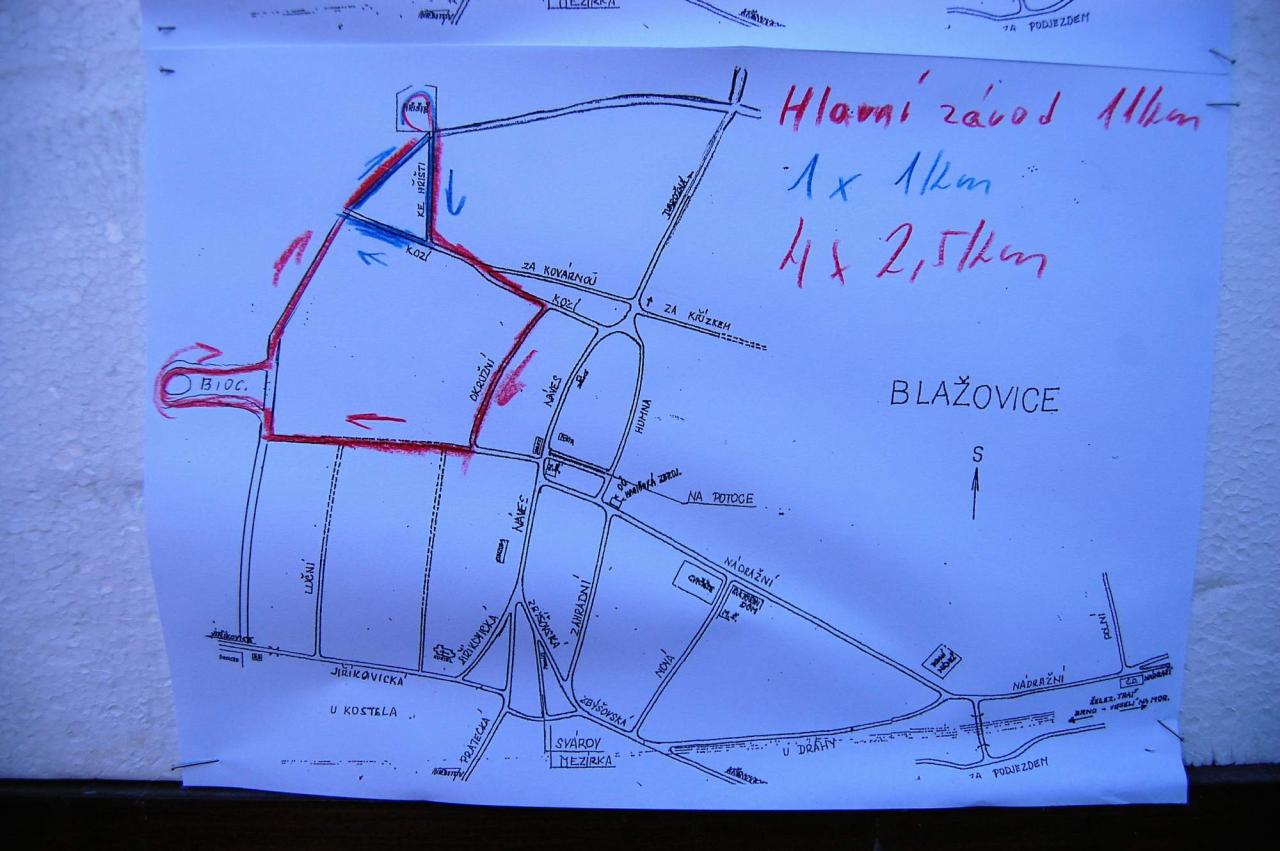 MEZIRKA
ZA PODJEZDEM
Hlavní závod 11km
1 x 1km
4 x 2,5km
KE HŘIŠTI
KOZÍ
ZA KOVÁRNOU
KOZÍ
ZA KŘÍZKEM
BIOC.
OKRUŽNÍ
NÁVES
HUMNA
BLAŽOVICE
S
NA POTOCE
NÁVES
NÁDRAŽNÍ
LUČNÍ
ZAHRADNÍ
JIŘÍKOVICKÁ
ZBÝŠOVSKÁ
NOVÁ
POLNÍ
JIŘÍKOVICE
JIŘÍKOVICKÁ
NÁDRAŽNÍ
U KOSTELA
PRATECKÁ
ZBÝŠOVSKÁ
ŽELEZ. TRAŤ
BRNO - VESELÍ NA MOR.
SVÁROV
MEZIRKA
U DRÁHY
ZA PODJEZDEM